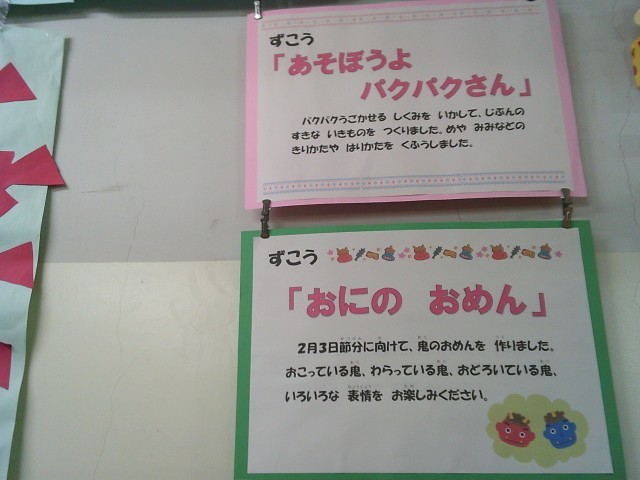 ずこう
「あそぼうよ
パクパクさん」
パクパクうごかせる しくみを いかして、じぶんの
すきな いきものを つくりました。めや みみなどの
きりかたや はりかたを くふうしました。
ずこう
「おにの おめん」
2月3日節分に向けて、鬼のおめんを 作りました。
おこっている鬼、わらっている鬼、おどろいている鬼、
いろいろな 表情を お楽しみください。